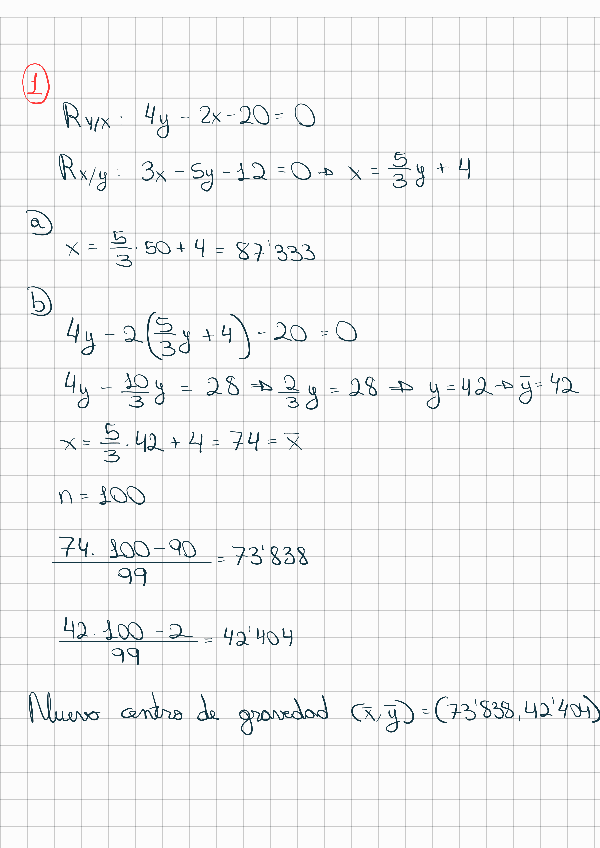 1
Ry/x: 4y - 2x - 20 = 0
Rx/y: 3x - 5y - 12 = 0 ⇒ x = 5/3 y + 4
a)
x = 5/3 · 50 + 4 = 87'333
b)
4y - 2(5/3 y + 4) - 20 = 0
4y - 10/3 y = 28 ⇒ 2/3 y = 28 ⇒ y = 42 ⇒ ȳ = 42
x = 5/3 · 42 + 4 = 74 = x̄
n = 100
74 · 100 - 90 / 99 = 73'838
42 · 100 - 2 / 99 = 42'404
Nuevo centro de gravedad (x̄, ȳ) = (73'838, 42'404)